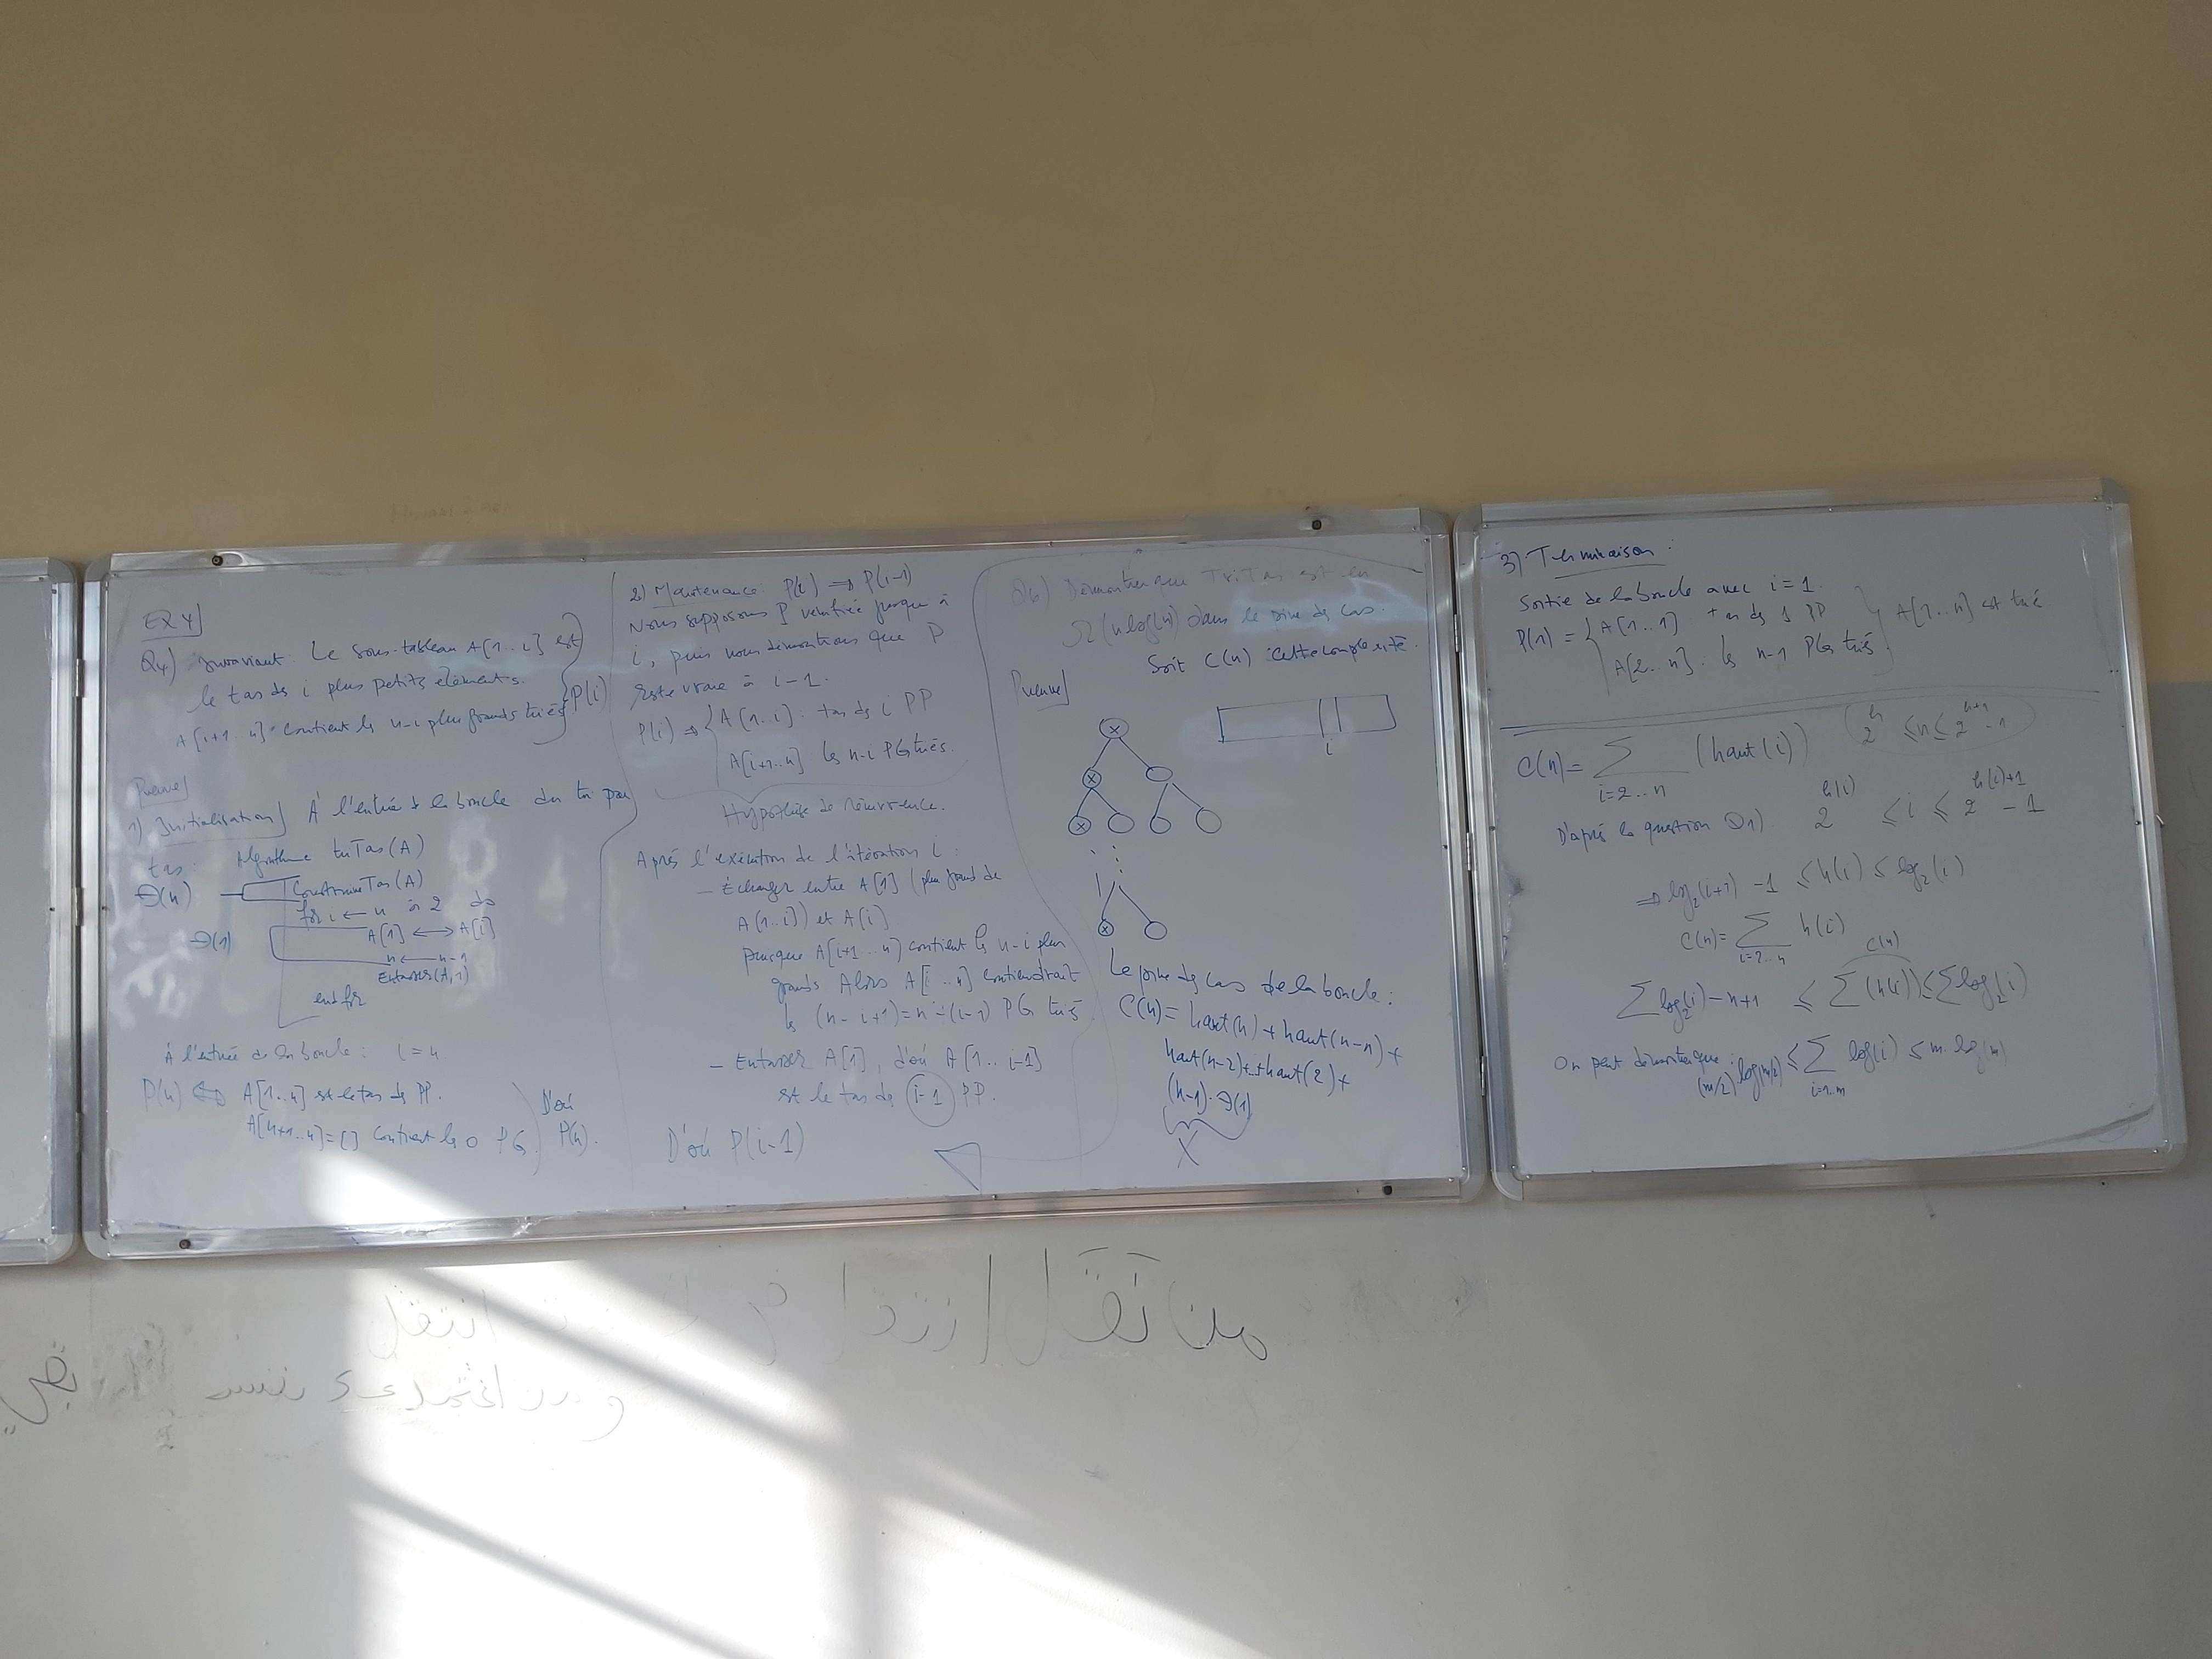 EX4
Q4) Invariant: Le sous-tableau A[1..i] est
le tas ds i plus petits éléments.
A[i+1..n]: contient les n-i plus grands triés
P(i)
Preuve
1) Initialisation] À l'entrée de la boucle du tri par
tas:
Algorithme triTas(A)
Θ(n)
ConstruireTas(A)
for i ← n à 2 do
Θ(1)
A[1] ↔ A[i]
n ← n-1
Entasser(A,1)
endfor
À l'entrée de la boucle: i = n
P(n) ⇔ A[1..n] est le tas de PP.
A[n+1..n]=[] contient les 0 PG.
D'où
P(n).
2) Maintenance P(i) ⇒ P(i-1)
Nous supposons P vérifiée jusque à
i, puis nous démontrons que P
reste vraie à i-1.
P(i) ⇒ { A[1..i]: tas ds i PP
A[i+1..n] les n-i PG triés.
Hypothèse de récurrence.
Après l'exécution de l'itération i:
- Échanger entre A[1] (plus grand de
A[1..i]) et A[i]
puisque A[i+1..n] contient les n-i plus
grands Alors A[i..n] contiendrait
les (n-i+1)=n-(i-1) PG triés
- Entasser A[1], d'où A[1..i-1]
est le tas de i-1 PP.
D'où P(i-1)
Q6) Démontrer que TriTas est en
Ω(n log(n)) dans le pire des cas.
Soit C(n) cette complexité.
Preuve]
i
Le pire des cas de la boucle:
C(n)= haut(n) + haut(n-1) +
haut(n-2)+..+haut(2)+
(n-1).Θ(1)
X
3) Terminaison:
Sortie de la boucle avec i=1.
P(1) = { A[1..1] tas de 1 PP
A[2..n]: les n-1 PGs triés } A[1..n] est trié
C(n)= ∑ (haut(i))
i=2..n
2^h ≤ n ≤ 2^{h+1} - 1
D'après la question Q1) 2^{h(i)} ≤ i ≤ 2^{h(i)+1} - 1
⇒ log₂(i+1) - 1 ≤ h(i) ≤ log₂(i)
C(n)= ∑ h(i)
i=2..n
C(n)
∑log₂(i) - n+1 ≤ ∑(h(i)) ≤ ∑log₂(i)
On peut démontrer que: (m/2) log(m/2) ≤ ∑ log(i) ≤ m.log(m)
i=1..m